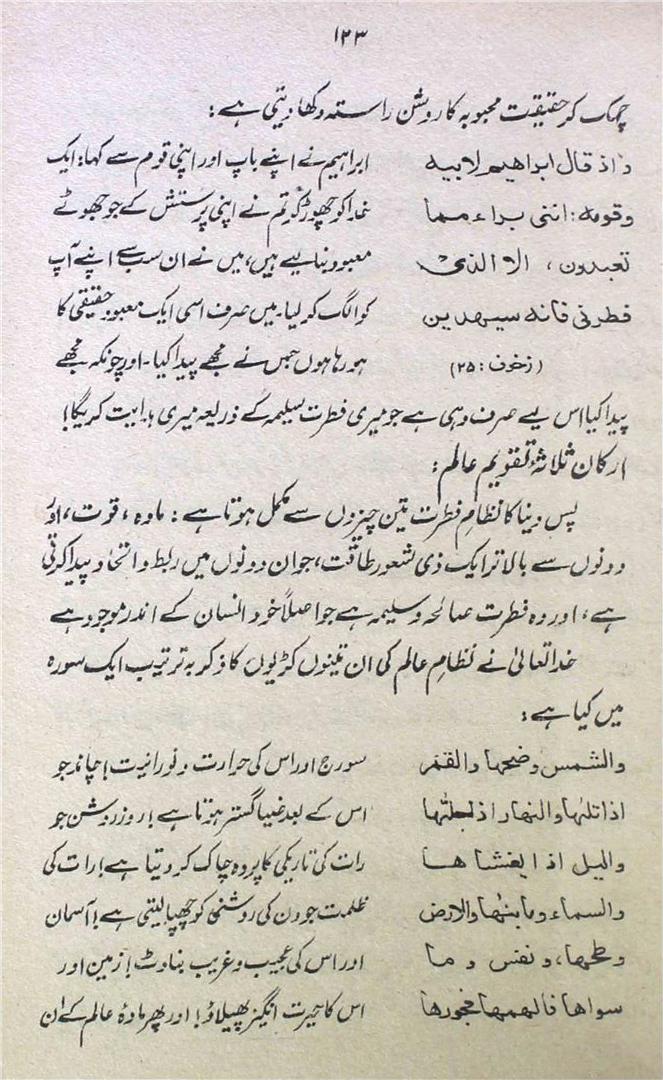 ۱۲۳
چمک کر حقیقت محبوبہ کا روشن راستہ دکھا دیتی ہے :
و اذ قال ابراھیم لابیہ
وقومہ : اننی براء مما
تعبدون ، الا الذی
فطرنی فانہ سیھدین
(زخرف : ۲۵)
ابراہیم نے اپنے باپ اور اپنی قوم سے کہا : ایک
خدا کو چھوڑ کر تم نے اپنی پرستش کے جو جھوٹے
معبود بنالیے ہیں ، میں نے ان سب سے اپنے آپ
کو الگ کرلیا۔ میں صرف اسی ایک معبود حقیقی کا
ہو رہا ہوں جس نے مجھے پیدا کیا ۔ اور چونکہ مجھے
پیدا کیا اس لیے صرف وہی ہے جو میری فطرت سلیمہ کے ذریعہ میری ہدایت کریگا !
ارکان ثلاثۂ تقویم عالم :
پس دنیا کا نظام فطرت تین چیزوں سے مکمل ہوتا ہے : مادہ ، قوت ، اور
دونوں سے بالاتر ایک ذی شعور طاقت ، جو ان دونوں میں ربط و اتحاد پیدا کرتی
ہے ، اور وہ فطرت صالحہ و سلیمہ ہے جو اصلاً خود انسان کے اندر موجود ہے
خدا تعالیٰ نے نظامِ عالم کی ان تینوں کڑیوں کا ذکر بہ ترتیب ایک سورہ
میں کیا ہے :
والشمس وضحہا والقمر
اذا تلٰہا والنھار اذا جلٰہا
والیل اذا یغشا ھا
والسماء وما بنٰہا والارض
وطحہا ، و نفس و ما
سواھا فالھمھا فجورھا
سورج اور اس کی حرارت و نورانیت ! چاند جو
اس کے بعد ضیا گستر ہوتا ہے ! روز روشن جو
رات کی تاریکی کا پردہ چاک کر دیتا ہے ! رات کی
ظلمت جو دن کی روشنی کو چھپا لیتی ہے ! آسمان
اور اس کی عجیب و غریب بناوٹ ! زمین اور
اس کا حیرت انگیز پھیلاؤ ! اور پھر مادۂ عالم کے ان